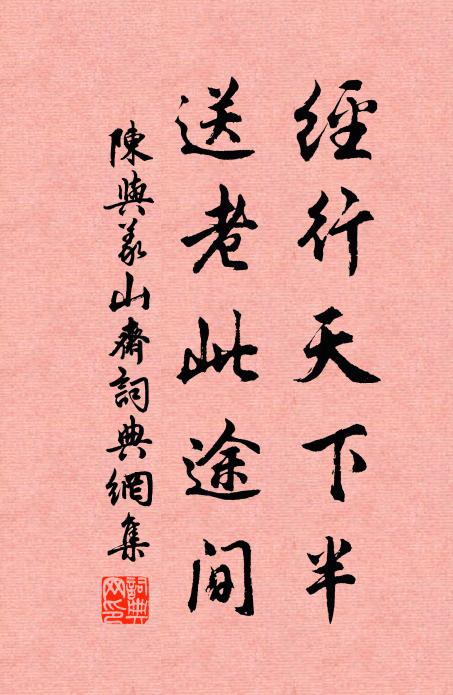 經行天下半
送老此途間
陳與義山齋詞典網集
詞典網印